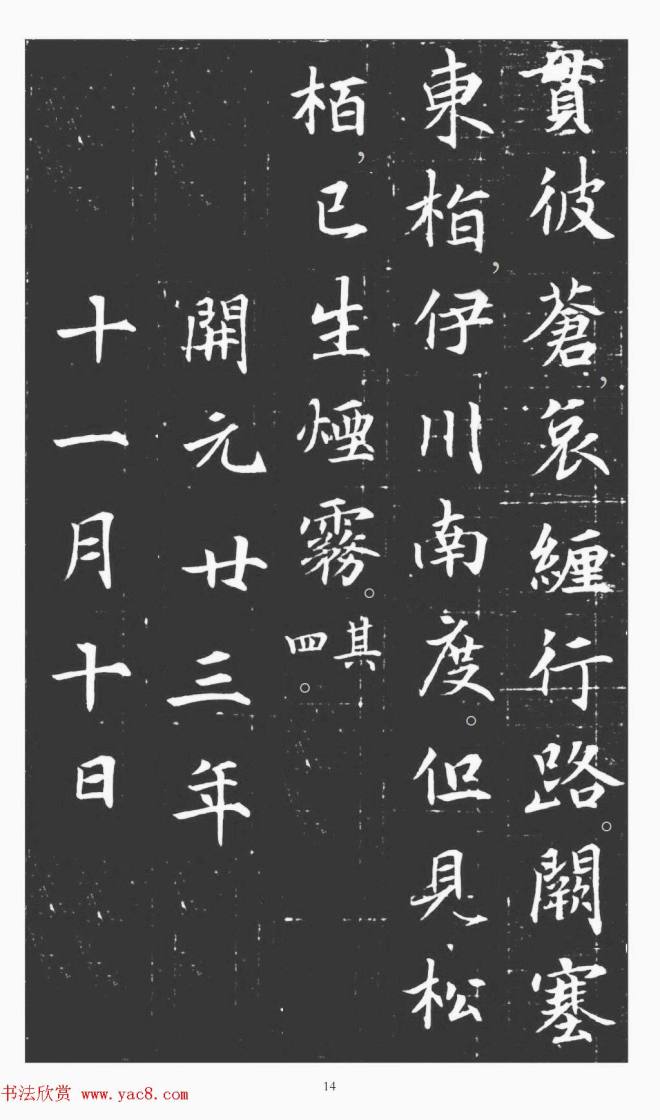 貫彼蒼，哀纏行路。闕塞
東栢，伊川南度。但見松
栢，已生煙霧。其四。
開元廿三年
十一月十日
14
书法欣赏 www.yac8.com